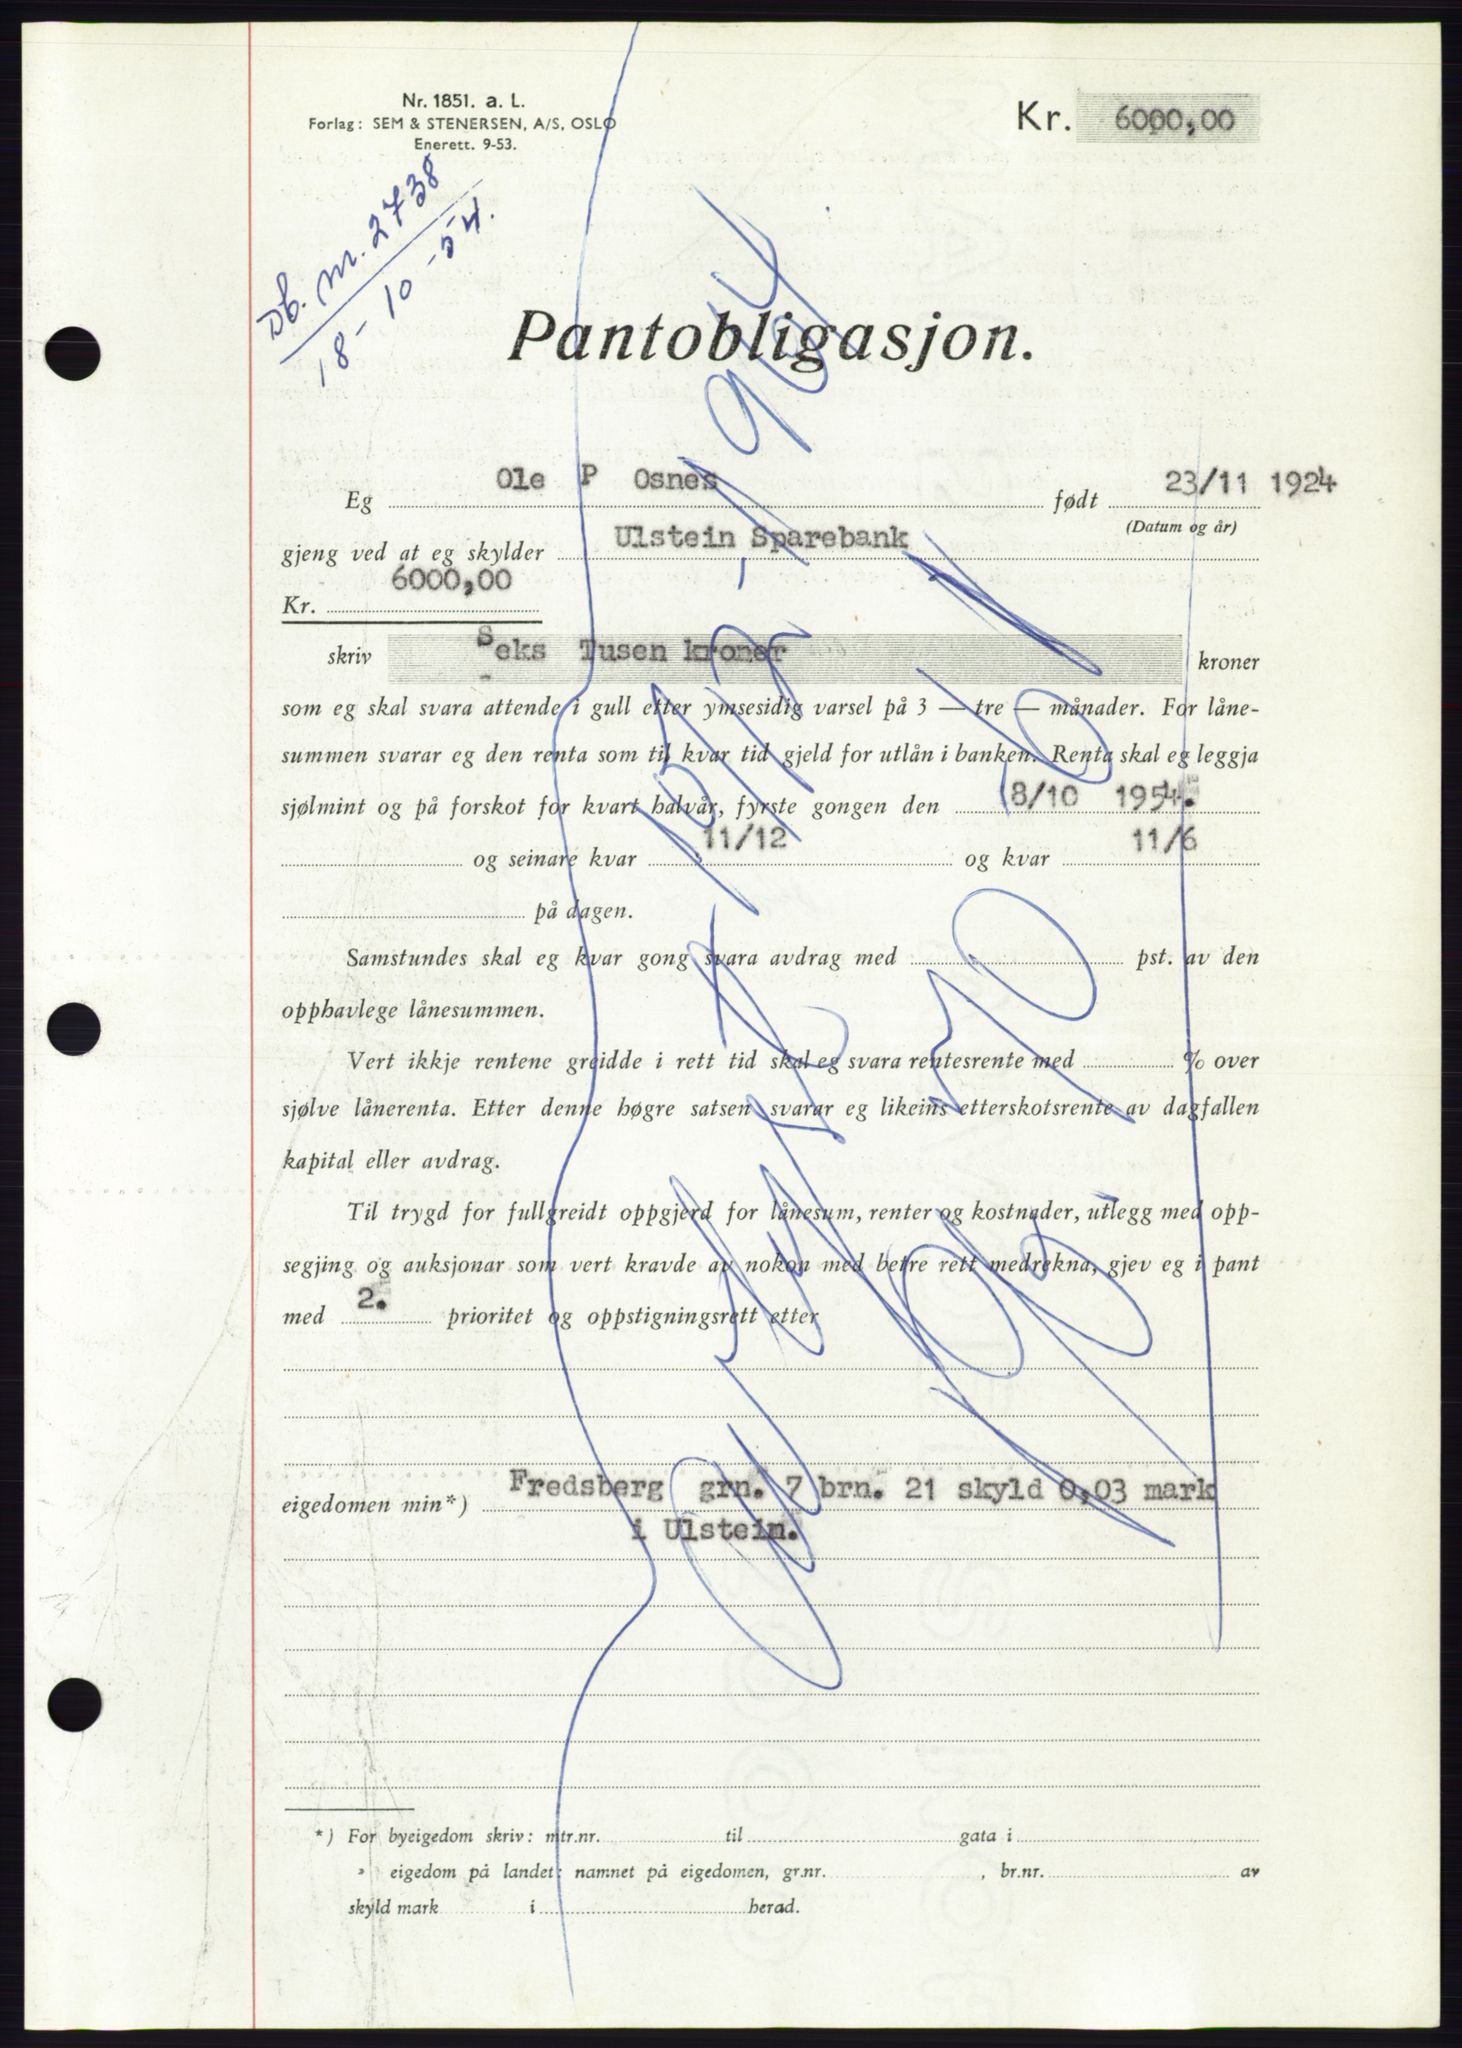 Nr. 1851. a. L.
Forlag: SEM & STENERSEN, A/S, OSLO
Enerett. 9-53.
Kr. 6000,00
Db. nr. 2738
18-10-54.
Pantobligasjon.
Eg Ole P Osnes født 23/11 1924
(Datum og år)
gjeng ved at eg skylder Ulstein Sparebank
Kr. 6000,00
skriv Seks Tusen kroner kroner
som eg skal svara attende i gull etter ymsesidig varsel på 3 — tre — månader. For låne-
summen svarar eg den renta som til kvar tid gjeld for utlån i banken. Renta skal eg leggja
sjølmint og på forskot for kvart halvår, fyrste gongen den 8/10 1954.
og seinare kvar 11/12 og kvar 11/6
på dagen.
Samstundes skal eg kvar gong svara avdrag med pst. av den
opphavlege lånesummen.
Vert ikkje rentene greidde i rett tid skal eg svara rentesrente med % over
sjølve lånerenta. Etter denne høgre satsen svarar eg likeins etterskotsrente av dagfallen
kapital eller avdrag.
Til trygd for fullgreidt oppgjerd for lånesum, renter og kostnader, utlegg med opp-
segjing og auksjonar som vert kravde av nokon med betre rett medrekna, gjev eg i pant
med 2. prioritet og oppstigningsrett etter
eigedomen min*) Fredsberg grn. 7 brn. 21 skyld 0,03 mark
i Ulstein.
*) For byeigedom skriv: mtr.nr. til gata i
» eigedom på landet: namnet på eigedomen, gr.nr. , br.nr. av
skyld mark i herad.